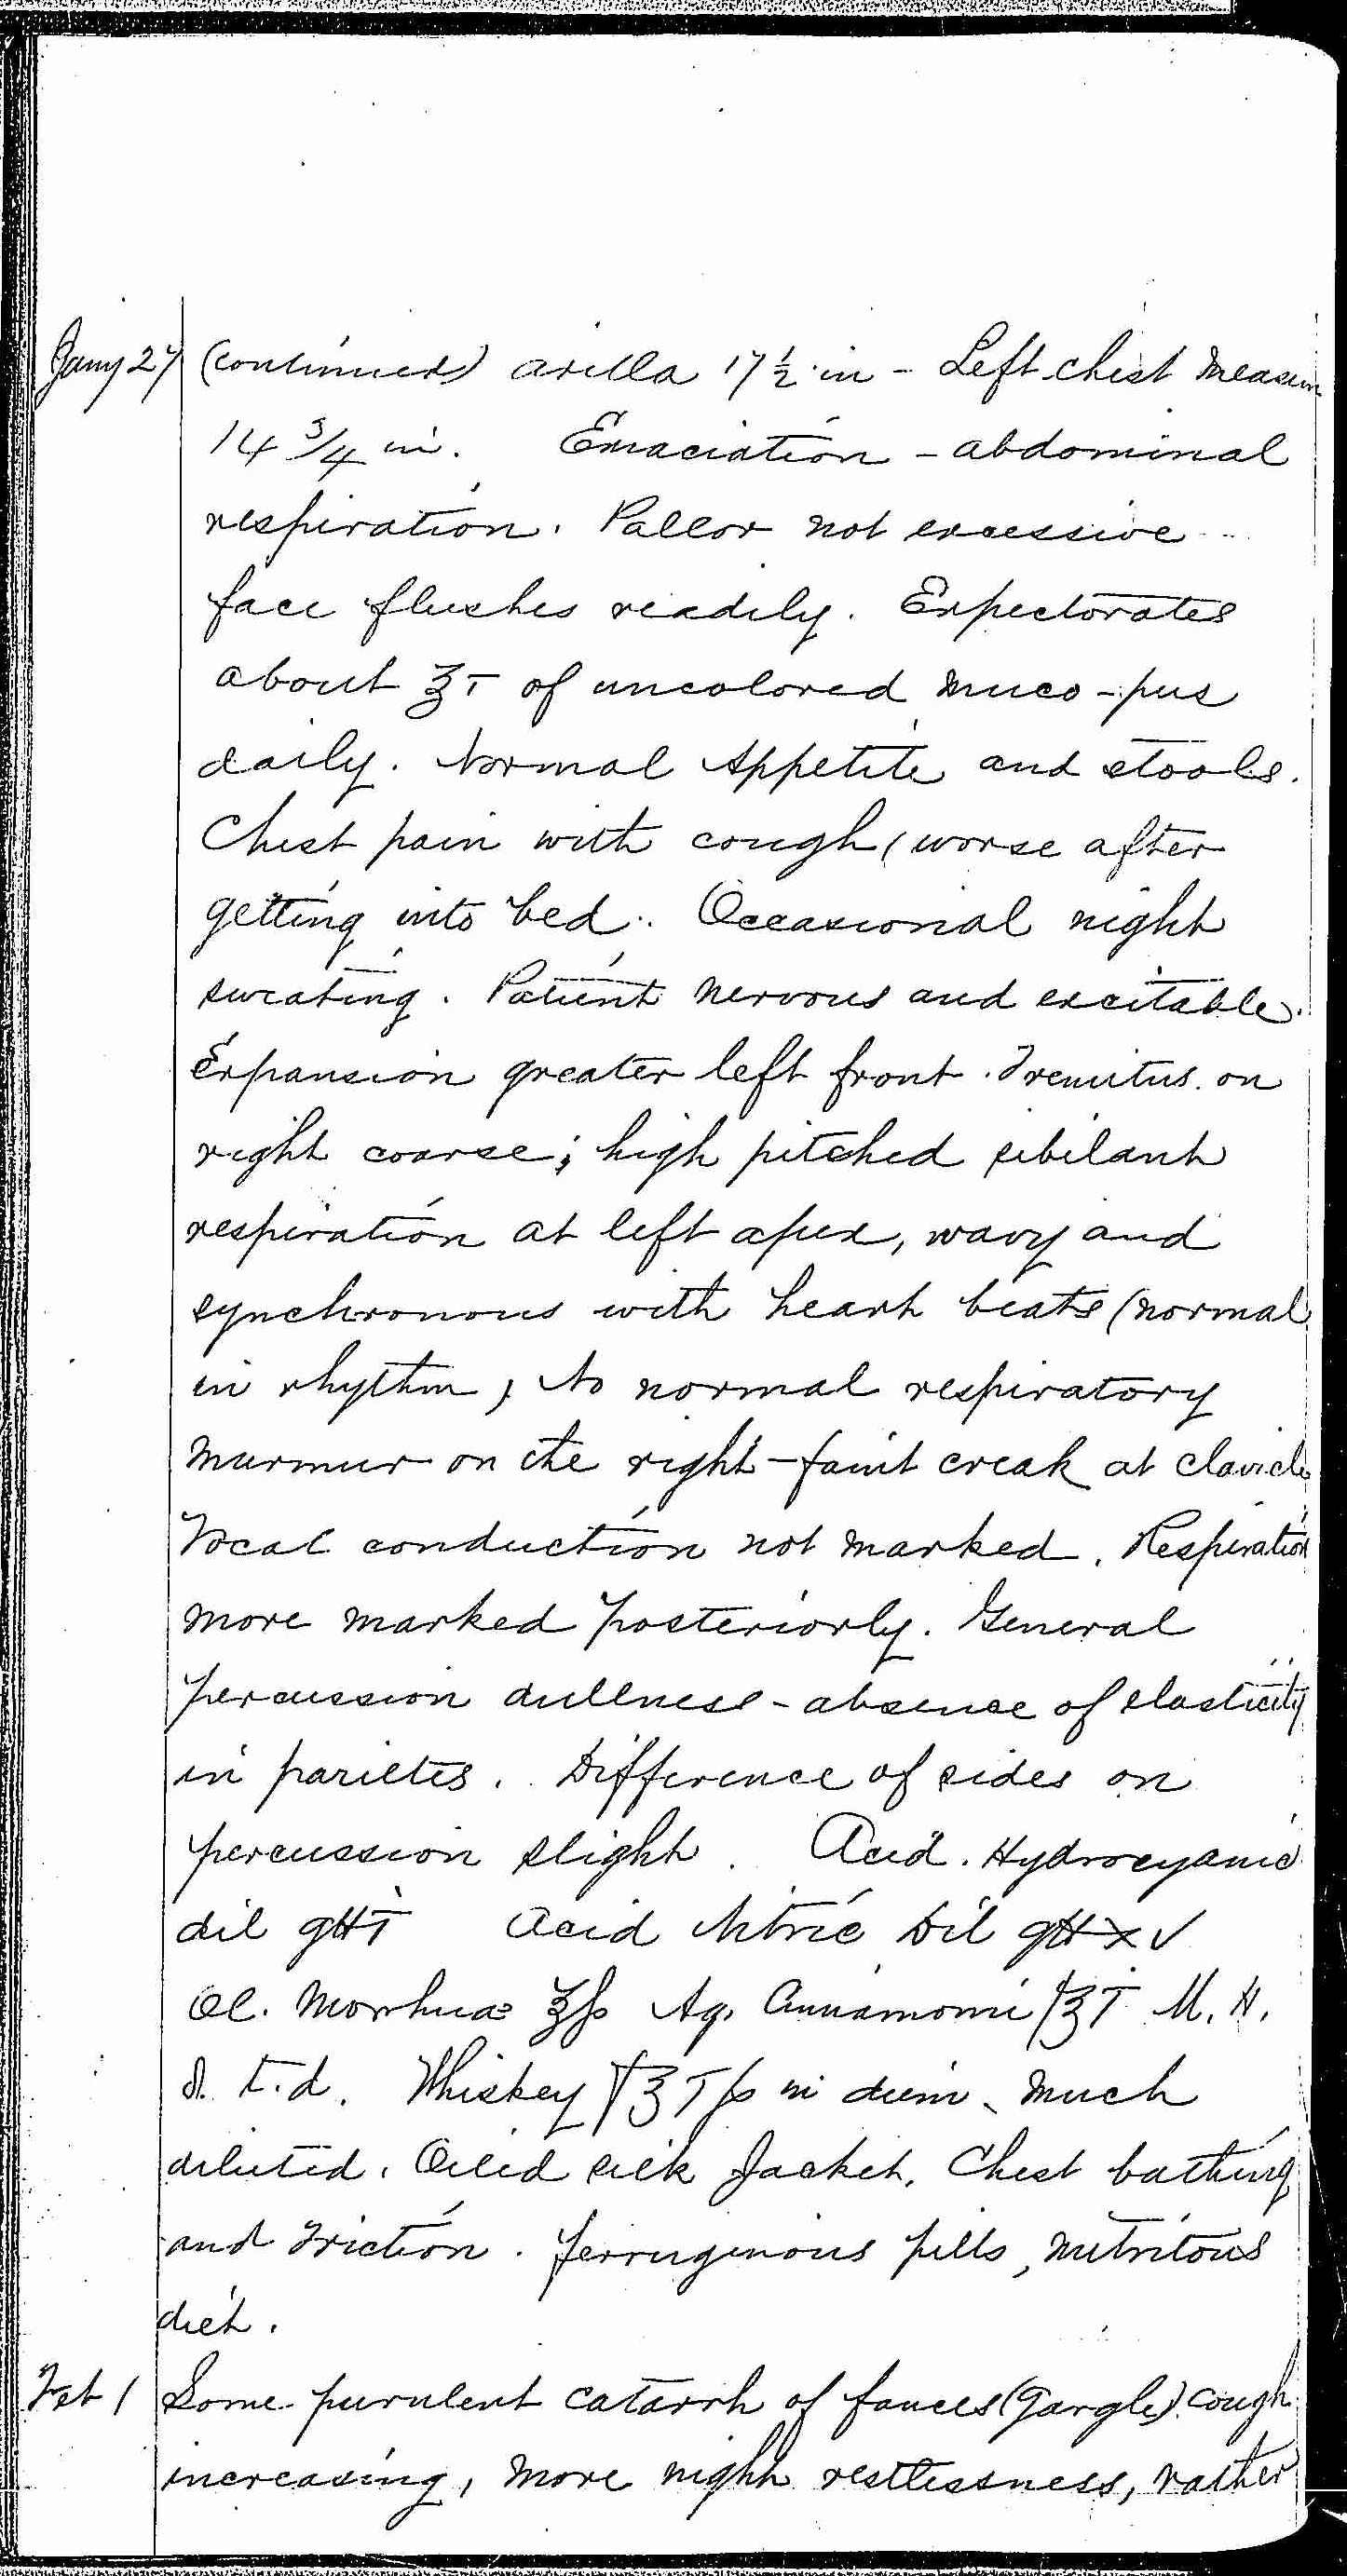 Jany 27 (continued) axilla 17 ½ in - Left chest measure
14 ¾ in. Emaciation - abdominal
respiration. Pallor not excessive
face flushes readily. Expectorates
about ʒT of uncolored muco-pus
daily. Normal Appetite and stools.
Chest pain with cough, worse after
getting into bed. Occasional night
sweating. Patient nervous and excitable.
Expansion greater left front. Fremitus on
right coarse; high pitched sibilant
respiration at left apex, wavy and
synchronous with heart beats (normal
in rhythm, No normal respiratory
murmur on the right - faint creak at clavicle
Vocal conduction not marked. Respiration
more marked posteriorly. General
percussion dullness - absence of elasticity
in parietes. Difference of sides on
percussion slight. Acid. Hydrocyanic
dil gtt T Acid Nitric Dil gtt xv
Ol. Morrhuae ʒfs Aq. Cinnamomi fʒT M. H.
S. t.d. Whiskey f℥Tfs in diem, much
diluted. Oiled silk Jacket. Chest bathing
and Friction. ferruginous pills, nutritous
diet.
Feb 1 Some purulent catarrh of fauces (Gargle) cough
increasing, more night restlessness, rather